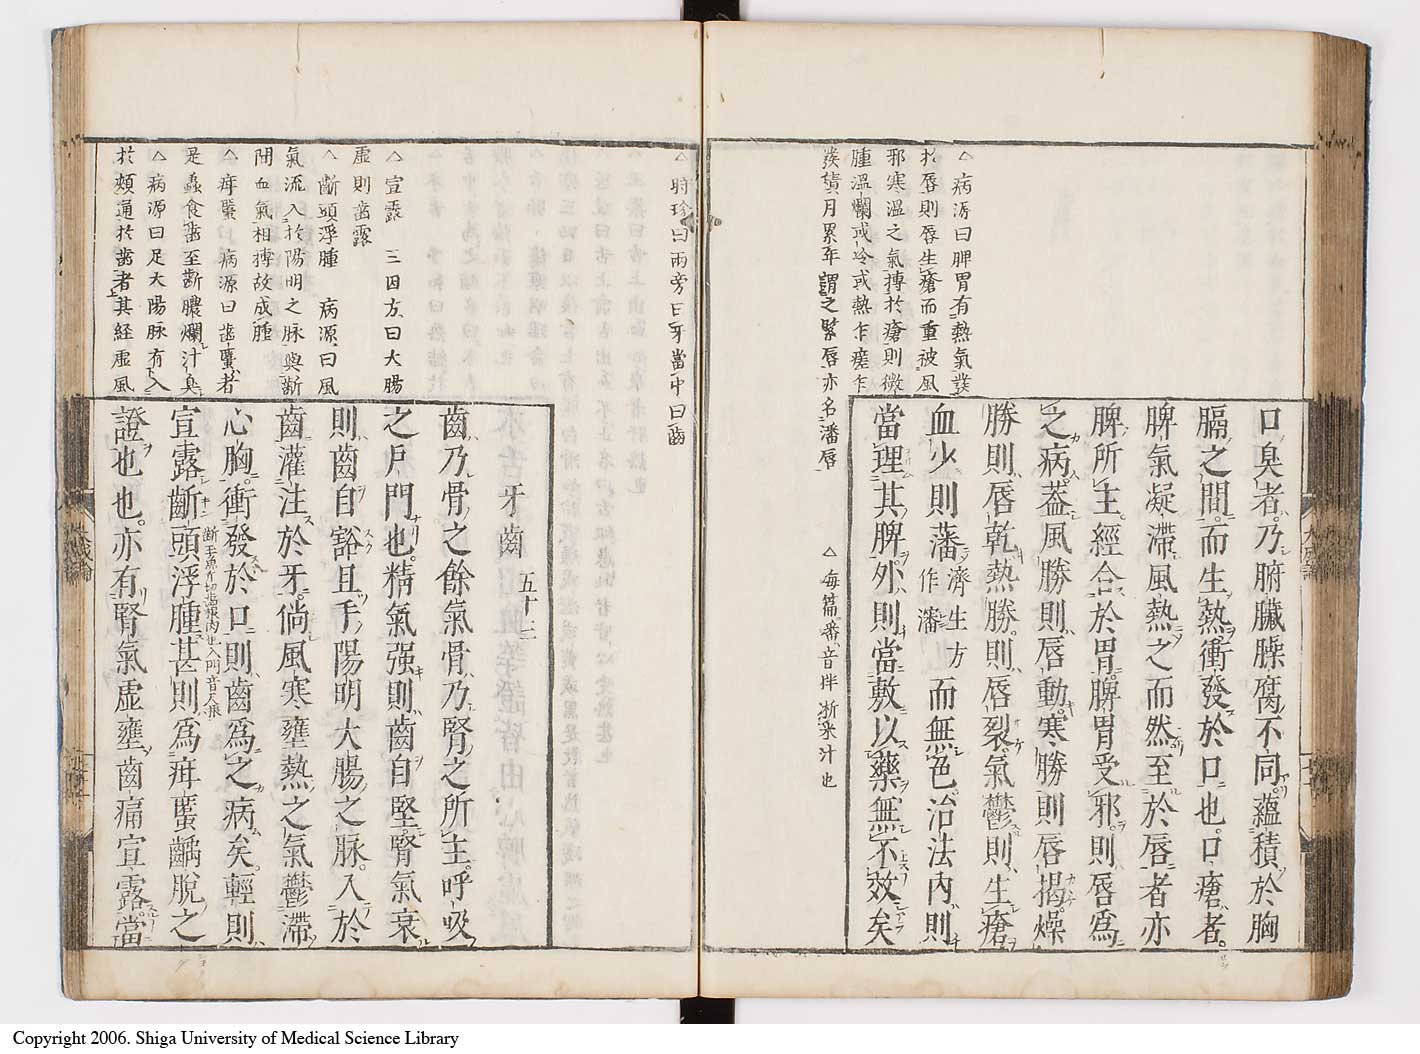 △病源曰脾胃有熱氣發
於唇則唇生瘡而重被風
邪寒溫之氣搏於瘡則微
腫溫爛或冷或熱乍瘥乍
發積月累年謂之緊唇亦名瀋唇
△毎篇番音拌淅米汁也
口臭者乃腑臟臊腐不同蘊積於胸
膈之間而生熱衝發於口也口瘡者
脾氣凝滯風熱之而然至於唇者亦
脾所主經合於胃脾胃受邪則唇爲
之病葢風勝則唇動寒勝則唇揭燥
勝則唇乾熱勝則唇裂氣鬱則生瘡
血少則瀋濟生方作瀋而無色治法內則
當理其脾外則當敷以藥無不效矣
△時珍曰兩旁曰牙當中曰齒
△宣露 三因方曰大腸
虛則齒露
△齗頭浮腫 病源曰風
氣流入於陽明之脉與齗
間血氣相搏故成腫
△疳䘌 病源曰齒䘌者
是蟲食齒至齗膿爛汁臭
△病源曰足太陽脉有入
於頰遍於齒者其經虛風
牙齒 五十三
齒乃骨之餘氣骨乃腎之所主呼吸
之戶門也精氣强則齒自堅腎氣衰
則齒自豁且手陽明大腸之脉入於
齒灌注於牙倘風寒壅熱之氣鬱滯
心胸衝發於口則齒爲之病矣輕則
宣露齗頭浮腫甚則爲疳䘌齲脫之
證也也亦有腎氣虛壅齒痛宣露當
Copyright 2006. Shiga University of Medical Science Library